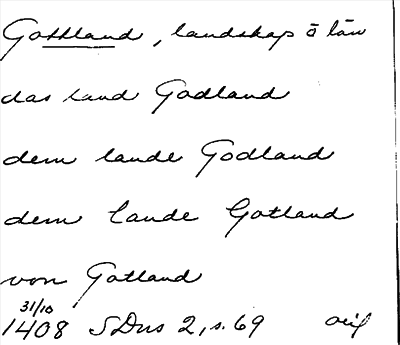 Gottland, landskap o län
das land Godland
dem lande Godland
dem lande Gotland
von Gotland
31/10
1408 SDns 2, s. 69